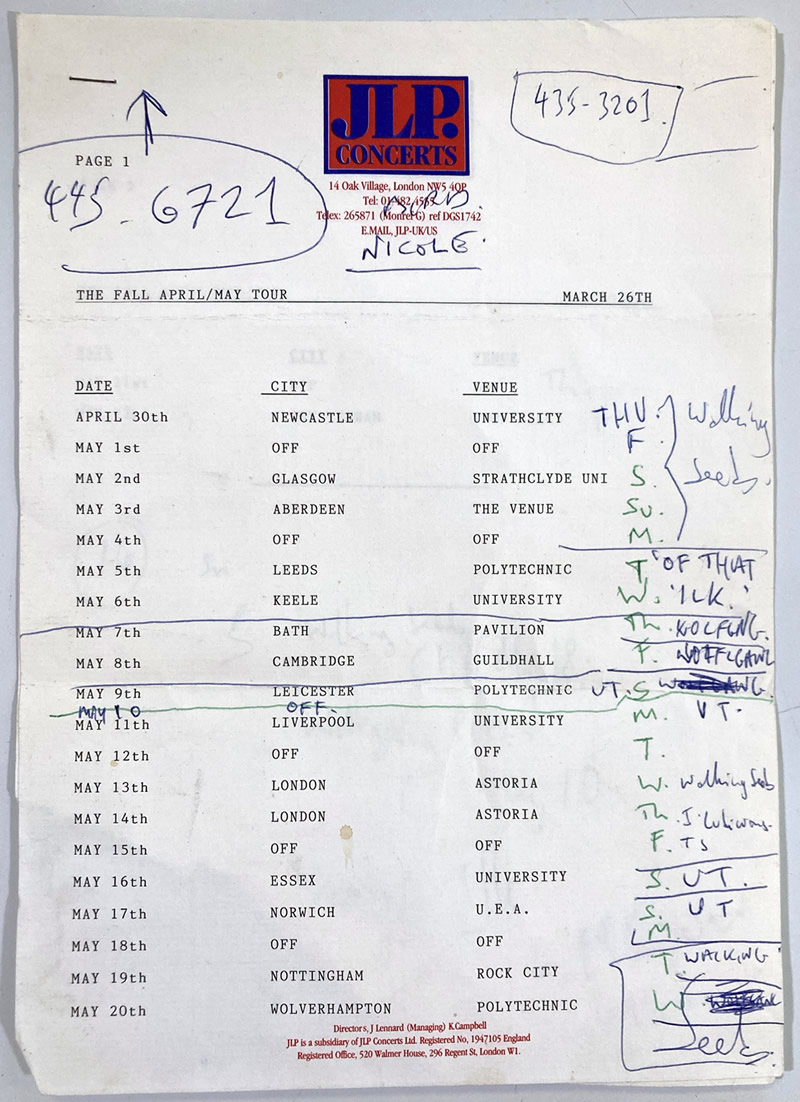 435-3201.
JLP.
CONCERTS
PAGE 1
445-6721
14 Oak Village, London NW5 4QP
Tel: 01-482 4585
Telex: 265871 (Monref G) ref DGS1742
E.MAIL, JLP-UK/US
NICOLE.
THE FALL APRIL/MAY TOUR MARCH 26TH
DATE CITY VENUE
APRIL 30th NEWCASTLE UNIVERSITY THU. Walking
MAY 1st OFF OFF F.
MAY 2nd GLASGOW STRATHCLYDE UNI S. Seeds.
MAY 3rd ABERDEEN THE VENUE SU.
MAY 4th OFF OFF M.
MAY 5th LEEDS POLYTECHNIC T 'OF THAT
MAY 6th KEELE UNIVERSITY W. 'ILK.'
MAY 7th BATH PAVILION Th.
MAY 8th CAMBRIDGE GUILDHALL F.
MAY 9th LEICESTER POLYTECHNIC UT. S
MAY 10 OFF.
MAY 11th LIVERPOOL UNIVERSITY M. UT.
MAY 12th OFF OFF T.
MAY 13th LONDON ASTORIA W. Walking Seeds
MAY 14th LONDON ASTORIA Th.
MAY 15th OFF OFF F. TS
MAY 16th ESSEX UNIVERSITY S. UT.
MAY 17th NORWICH U.E.A. S. UT
MAY 18th OFF OFF M.
MAY 19th NOTTINGHAM ROCK CITY T. WALKING
MAY 20th WOLVERHAMPTON POLYTECHNIC W
Seeds.
Directors, J Lennard (Managing) K.Campbell
JLP is a subsidiary of JLP Concerts Ltd. Registered No, 1947105 England
Registered Office, 520 Walmer House, 296 Regent St, London W1.